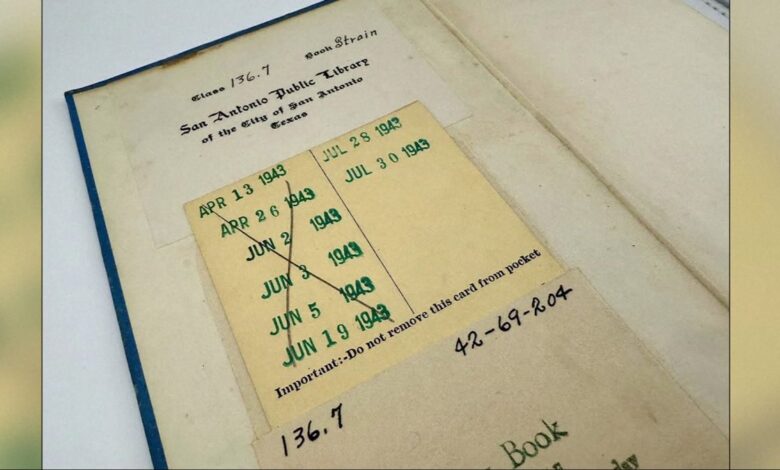 Class 136.7 Book Strain
San Antonio Public Library
of the City of San Antonio
Texas
APR 13 1943
APR 26 1943
JUN 2 1943
JUN 3 1943
JUN 5 1943
JUN 19 1943
JUL 28 1943
JUL 30 1943
Important:-Do not remove this card from pocket
42-69-204
136.7
Book